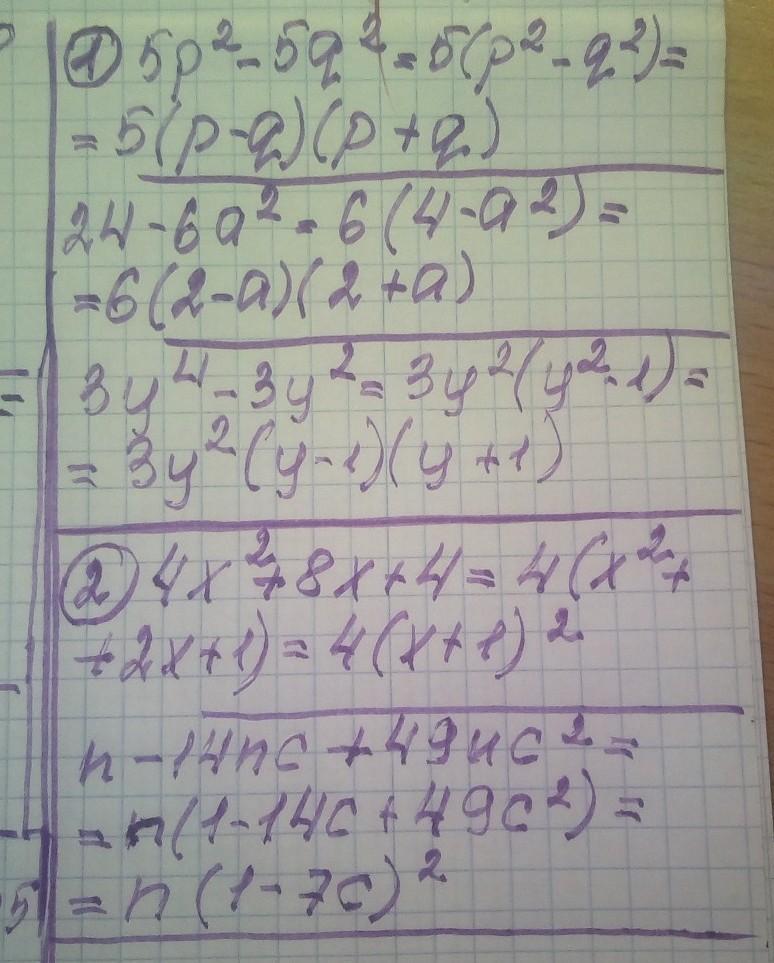 ① 5p² - 5q² = 5(p² - q²) =
= 5(p - q)(p + q)
24 - 6a² = 6(4 - a²) =
= 6(2 - a)(2 + a)
3y⁴ - 3y² = 3y²(y² - 1) =
= 3y²(y - 1)(y + 1)
② 4x² + 8x + 4 = 4(x² +
+ 2x + 1) = 4(x + 1)²
n - 14nc + 49nc² =
= n(1 - 14c + 49c²) =
= n(1 - 7c)²
5